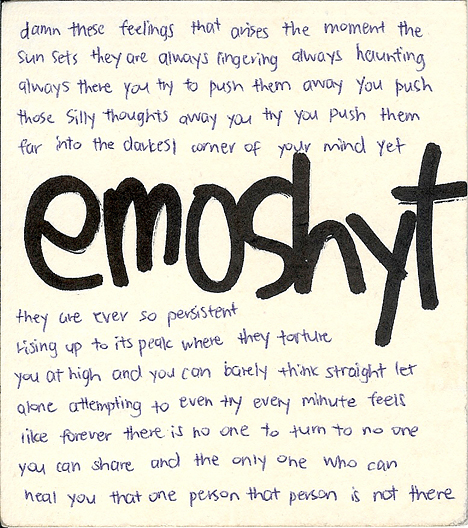 damn these feelings that arises the moment the
sun sets they are always lingering always haunting
always there you try to push them away you push
those silly thoughts away you try you push them
far into the darkest corner of your mind yet
emoshyt
they are ever so persistent
rising up to its peak where they torture
you at high and you can barely think straight let
alone attempting to even try every minute feels
like forever there is no one to turn to no one
you can share and the only one who can
heal you that one person that person is not there